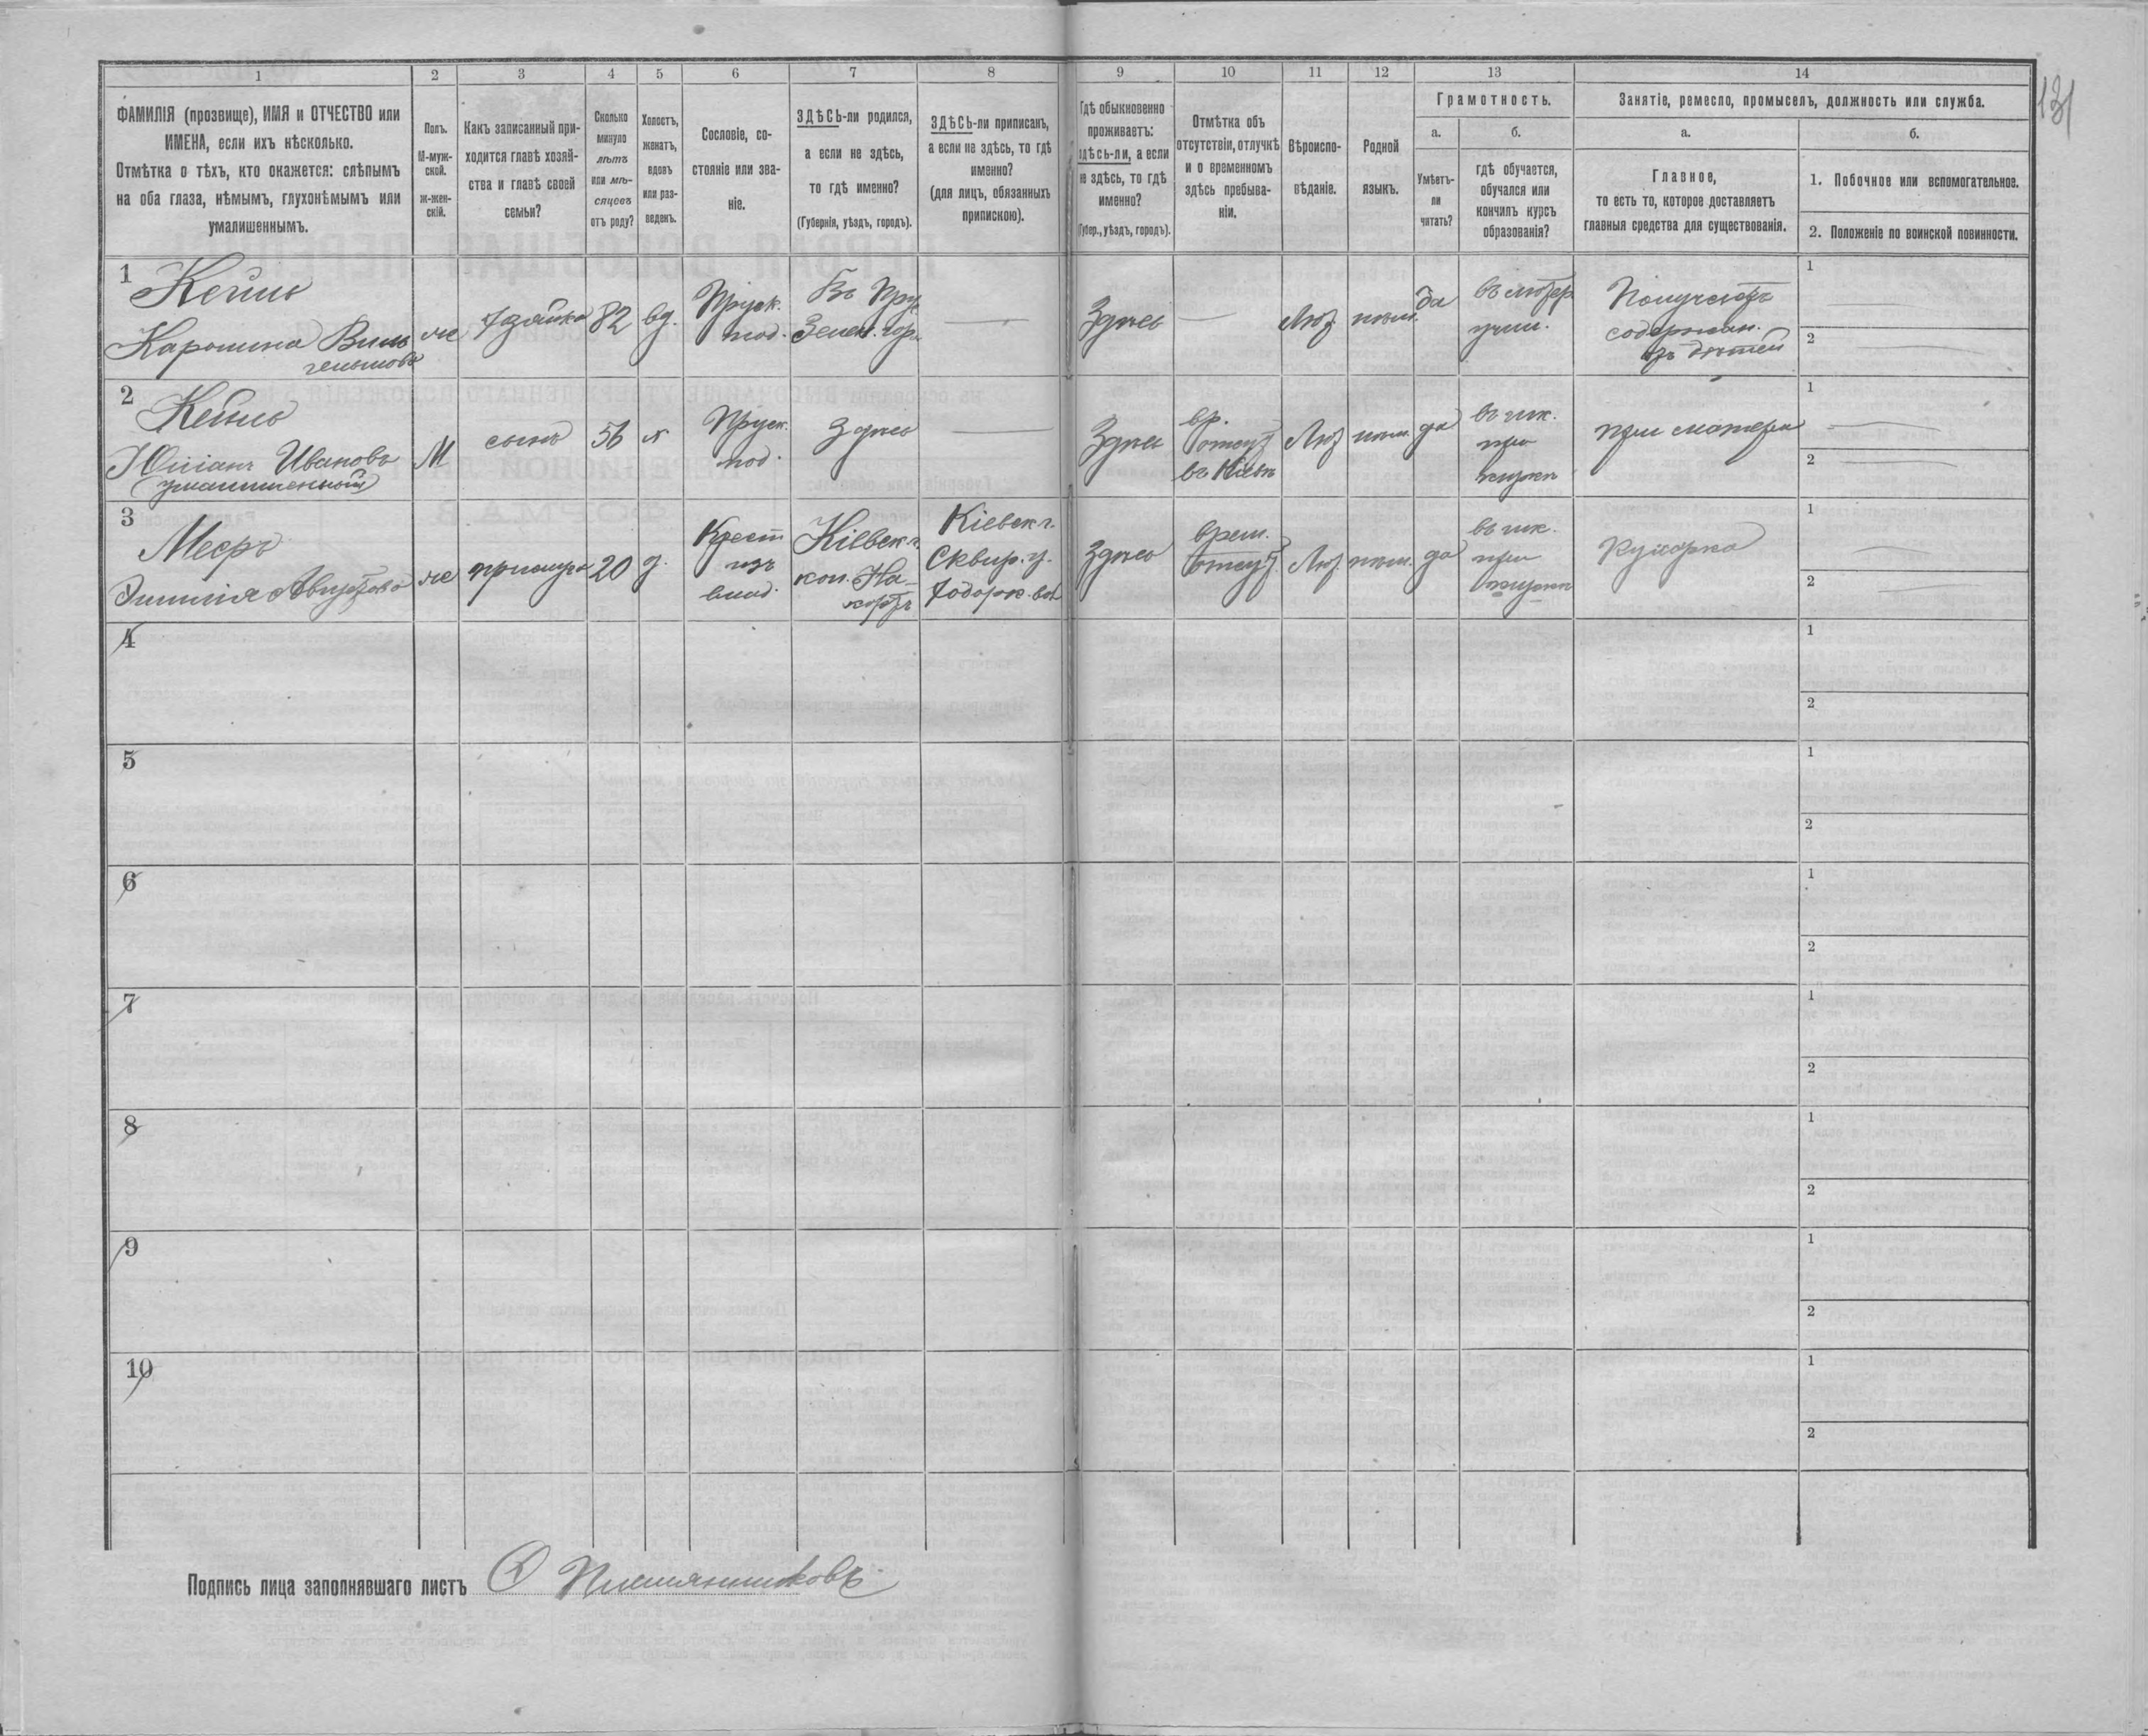 131
1 2 3 4 5 6 7 8 9 10 11 12 13 14
ФАМИЛІЯ (прозвище), ИМЯ и ОТЧЕСТВО или
ИМЕНА, если ихъ нѣсколько.
Отмѣтка о тѣхъ, кто окажется: слѣпымъ
на оба глаза, нѣмымъ, глухонѣмымъ или
умалишеннымъ.
Полъ.
М-муж-
ской.
ж-жен-
скій.
Какъ записанный при-
ходится главѣ хозяй-
ства и главѣ своей
семьи?
Сколько
минуло
лѣтъ
или мѣ-
сяцевъ
отъ роду?
Холостъ,
женатъ,
вдовъ
или раз-
веденъ.
Сословіе, со-
стояніе или зва-
ніе.
ЗДѢСЬ-ли родился,
а если не здѣсь,
то гдѣ именно?
(Губернія, уѣздъ, городъ).
ЗДѢСЬ-ли приписанъ,
а если не здѣсь, то гдѣ
именно?
(для лицъ, обязанныхъ
припискою).
Гдѣ обыкновенно
проживаетъ:
здѣсь-ли, а если
не здѣсь, то гдѣ
именно?
(Губер., уѣздъ, городъ).
Отмѣтка объ
отсутствіи, отлучкѣ
и о временномъ
здѣсь пребыва-
ніи.
Вѣроиспо-
вѣданіе.
Родной
языкъ.
Грамотность.
а.
Умѣетъ-
ли
читать?
б.
гдѣ обучается,
обучался или
кончилъ курсъ
образованія?
Занятіе, ремесло, промыселъ, должность или служба.
а.
Главное,
то есть то, которое доставляетъ
главныя средства для существованія.
б.
1. Побочное или вспомогательное.
2. Положеніе по воинской повинности.
1
Кейль
Каролина Виль
гельмова
ж
хозяйка
82
вд.
Пруск.
под.
Въ Пру
Здѣсь
Лют
нѣм.
да
въ лютер
учил.
Получаетъ
содержан.
отъ дѣтей
1
2
2
Кейль
Юліанъ Ивановъ
(умалишенный)
М
сынъ
56
х
Пруск.
под.
Здѣсь
Здѣсь
вр.
отсут
въ Кіевѣ
Лют
нѣм.
да
въ шк.
при
кирхѣ
при матери
1
2
3
Месръ
Эмилія Августова
ж
прислуга
20
д.
Крест
изъ
влад.
Кіевск. г.
кол.
Кіевск. г.
Сквир. у.
Ходорк. вол
Здѣсь
врем.
отсут
Лют.
нѣм.
да
въ шк.
при
кирхѣ
Кухарка
1
2
4
1
2
5
1
2
6
1
2
7
1
2
8
1
2
9
1
2
10
1
2
Подпись лица заполнявшаго листъ